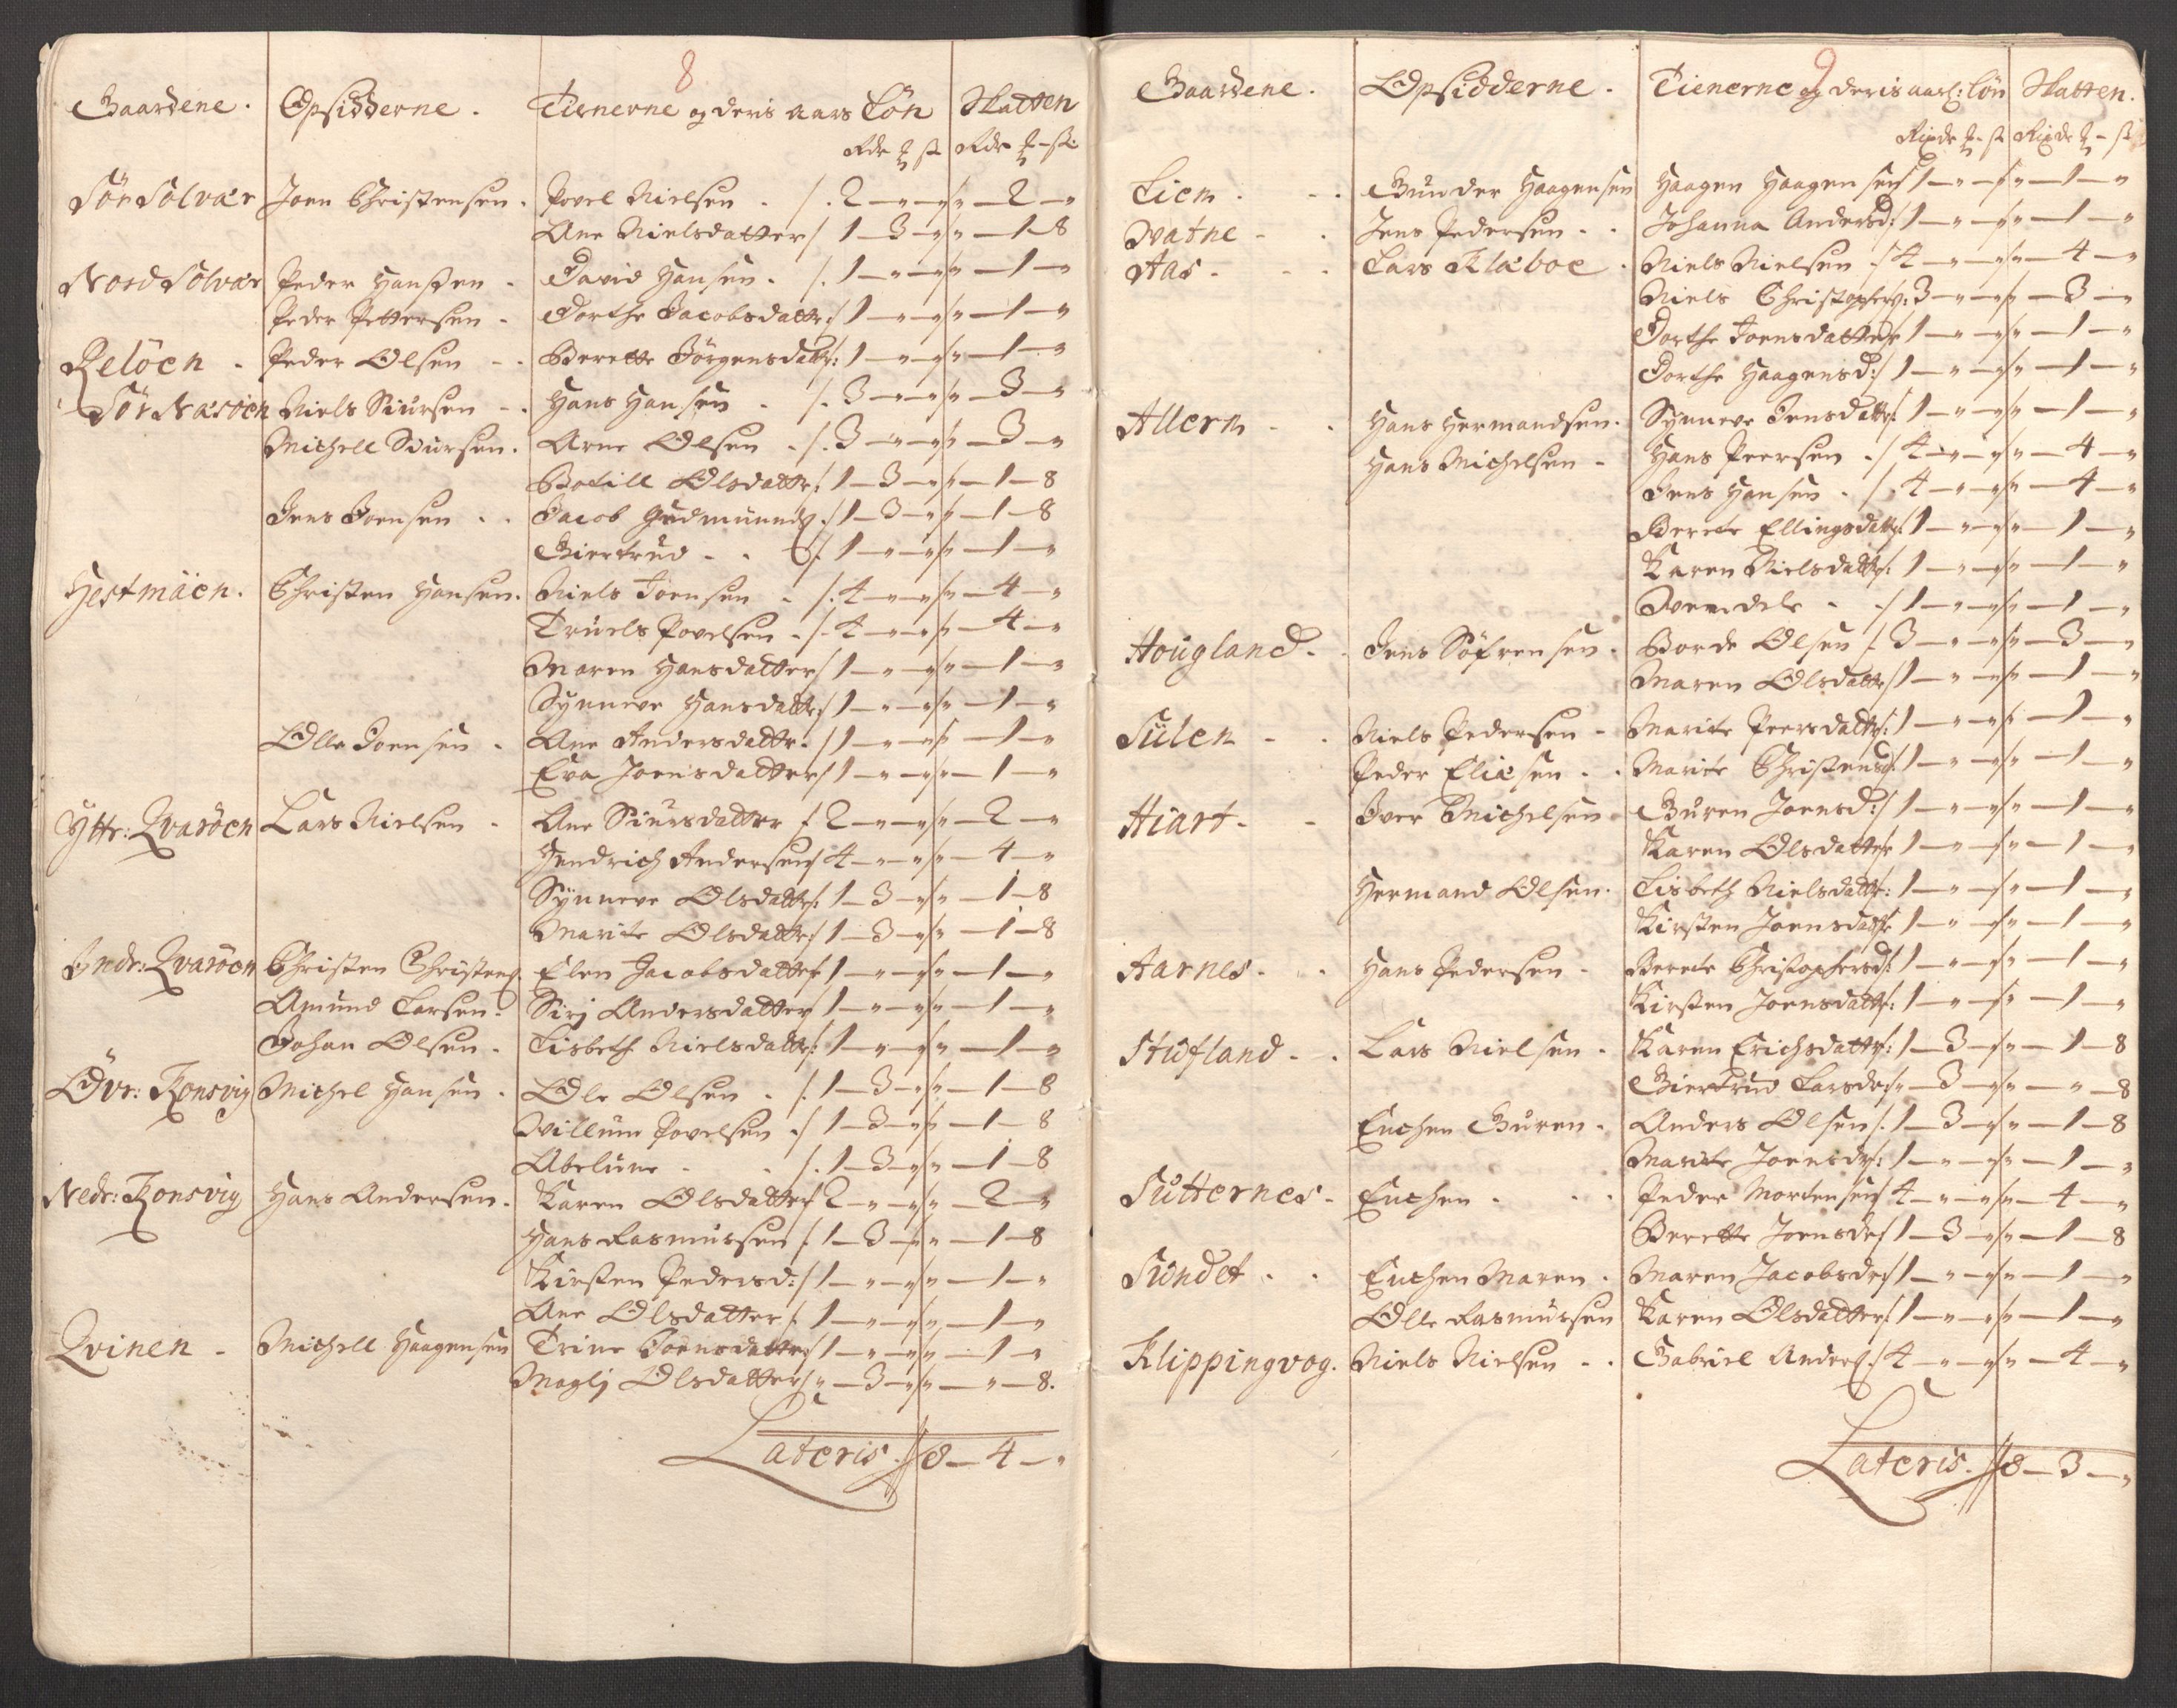 8
Gaardene. Opsidderne. Tienerne og deris aars Lön Skatten
Rdr ß Rdr ß
Sör Solvær Joen Christensen. Povel Nielsen . /. 2 – " – " /" – 2 – "
Ane Nielsdatter / 1 – 3 – " /" – 1 – 8
Nord Solvær Peder Hansen - David Hansen . /. 1 – " – " /" – 1 – "
Peder Pettersen - Dorthe Jacobsdattr: / 1 – " – " /" – 1 – "
Relöen - Peder Olsen - - Berette Jörgensdattr: 1 – " – " /" – 1 – "
Sör Næsöen Niels Siursen - . Hans Hansen . /. 3 – " – " /" – 3 – "
Michell Siursen. Arne Olsen . /. 3 – " – " /" – 3 – "
Botill Olsdattr: 1 – 3 – " /" – 1 – 8
Jens Joensen . . Jacob Gudmunds: / 1 – 3 – " /" – 1 – 8
Giertrud - . /. 1 – " – " /" – 1 – "
Hestmäen. Christen Hansen. Niels Joensen . /. 4 – " – " /" – 4 – "
Truels Povelsen . /. 4 – " – " /" – 4 – "
Maren Hansdatter / 1 – " – " /" – 1 – "
Synneve Hansdattr: / 1 – " – " /" – 1 – "
Olle Joensen . Ane Andersdattr. / 1 – " – " /" – 1 – "
Eva Joensdatter / 1 – " – " /" – 1 – "
Yttr: Qvaröen Lars Nielsen - Ane Siursdatter / 2 – " – " /" – 2 – "
Hendrich Andersen / 4 – " – " /" – 4 – "
Synneve Olsdattr: 1 – 3 – " /" – 1 – 8
Marite Olsdattr: / 1 – 3 – " /" – 1 – 8
Indr: Qvaröen Christen Christens. Elen Jacobsdatter 1 – " – " /" – 1 – "
Amund Larsen. Sirj Andersdatter / 1 – " – " /" – 1 – "
Johan Olsen - Lisbeth Nielsdattr: 1 – " – " /" – 1 – "
Övr: Konsvig Michel Hansen . Ole Olsen . /. 1 – 3 – " /" – 1 – 8
Willum Povelsen ./ 1 – 3 – " /" – 1 – 8
Abelune - . /. 1 – 3 – " /" – 1 – 8
Nedr: Konsvig Hans Andersen. Karen Olsdatter 2 – " – " /" – 2 – "
Hans Rasmussen /. 1 – 3 – " /" – 1 – 8
Kirsten Pedersd: / 1 – " – " /" – 1 – "
Ane Olsdatter / 1 – " – " /" – 1 – "
Qvinen - Michell Haagensen Trine Joensdatter 1 – " – " /" – 1 – "
Maglj Olsdatter " – 3 – " /" – " – 8.
Lateris. 8 – 4 – "
9
Gaardene. Opsidderne. Tienerne og deris aarl: Lön Skatten.
Rixdr ß Rixdr ß
Liem . - . Gunder Haagensen Haagen Haagensen 1 – " – " /" – 1 – "
Vatne - . Jens Pedersen - . Johanna Andersd: 1 – " – " /" – 1 – "
Aas - - . Lars Klæboe . Niels Nielsen ./ 4 – " – " /" – 4 – "
Niels Christophers: 3 – " – " /" – 3 – "
Dorthe Joensdatter 1 – " – " /" – 1 – "
Dorthe Haagensd: / 1 – " – " /" – 1 – "
Allern - . Hans Hermandsen. Synneve Jensdattr: 1 – " – " /" – 1 – "
Hans Michelsen - Hans Peersen . / 4 – " – " /" – 4 – "
Jens Hansen . /. 4 – " – " /" – 4 – "
Berete Ellingsdattr: 1 – " – " /" – 1 – "
Karen Nielsdattr: 1 – " – " /" – 1 – "
. ./ 1 – " – " /" – 1 – "
Hougland - . Jens Söfrensen . Borde Olsen /. 3 – " – " /" – 3 – "
Maren Olsdattr / 1 – " – " /" – 1 – "
Sulen - . Niels Pedersen - Marite Peersdattr: 1 – " – " /" – 1 – "
Peder Eliæsen . . Marite Christensd: 1 – " – " /" – 1 – "
Hiart - - Iver Michelsen Guren Joensd: / 1 – " – " /" – 1 – "
Karen Olsdatter 1 – " – " /" – 1 – "
Hermand Olsen. Lisbeth Nielsdattr: 1 – " – " /" – 1 – "
Kirsten Joensdattr 1 – " – " /" – 1 – "
Aarnes - . Hans Pedersen - Berete Christophersd: 1 – " – " /" – 1 – "
Kirsten Joensdattr: 1 – " – " /" – 1 – "
Stufland - . Lars Nielsen - Karen Erichsdattr: 1 – 3 – " /" – 1 – 8
Giertrud Larsdr " – 3 – " /" – " – 8
Enchen Guren - Anders Olsen /. 1 – 3 – " /" – 1 – 8
Marite Joensdr: 1 – " – " /" – 1 – "
Sutternes - Enchen . . . Peder Mortensen 4 – " – " /" – 4 – "
Berette Joensdr 1 – 3 – " /" – 1 – 8
Sundet . . Enchen Maren . Maren Jacobsdr 1 – " – " /" – 1 – "
Olle Rasmussen Karen Olsdatter 1 – " – " /" – 1 – "
Klippingvog. Niels Nielsen - . Gabriel Anders: / 4 – " – " /" – 4 – "
Lateris. 8 – 3 – "